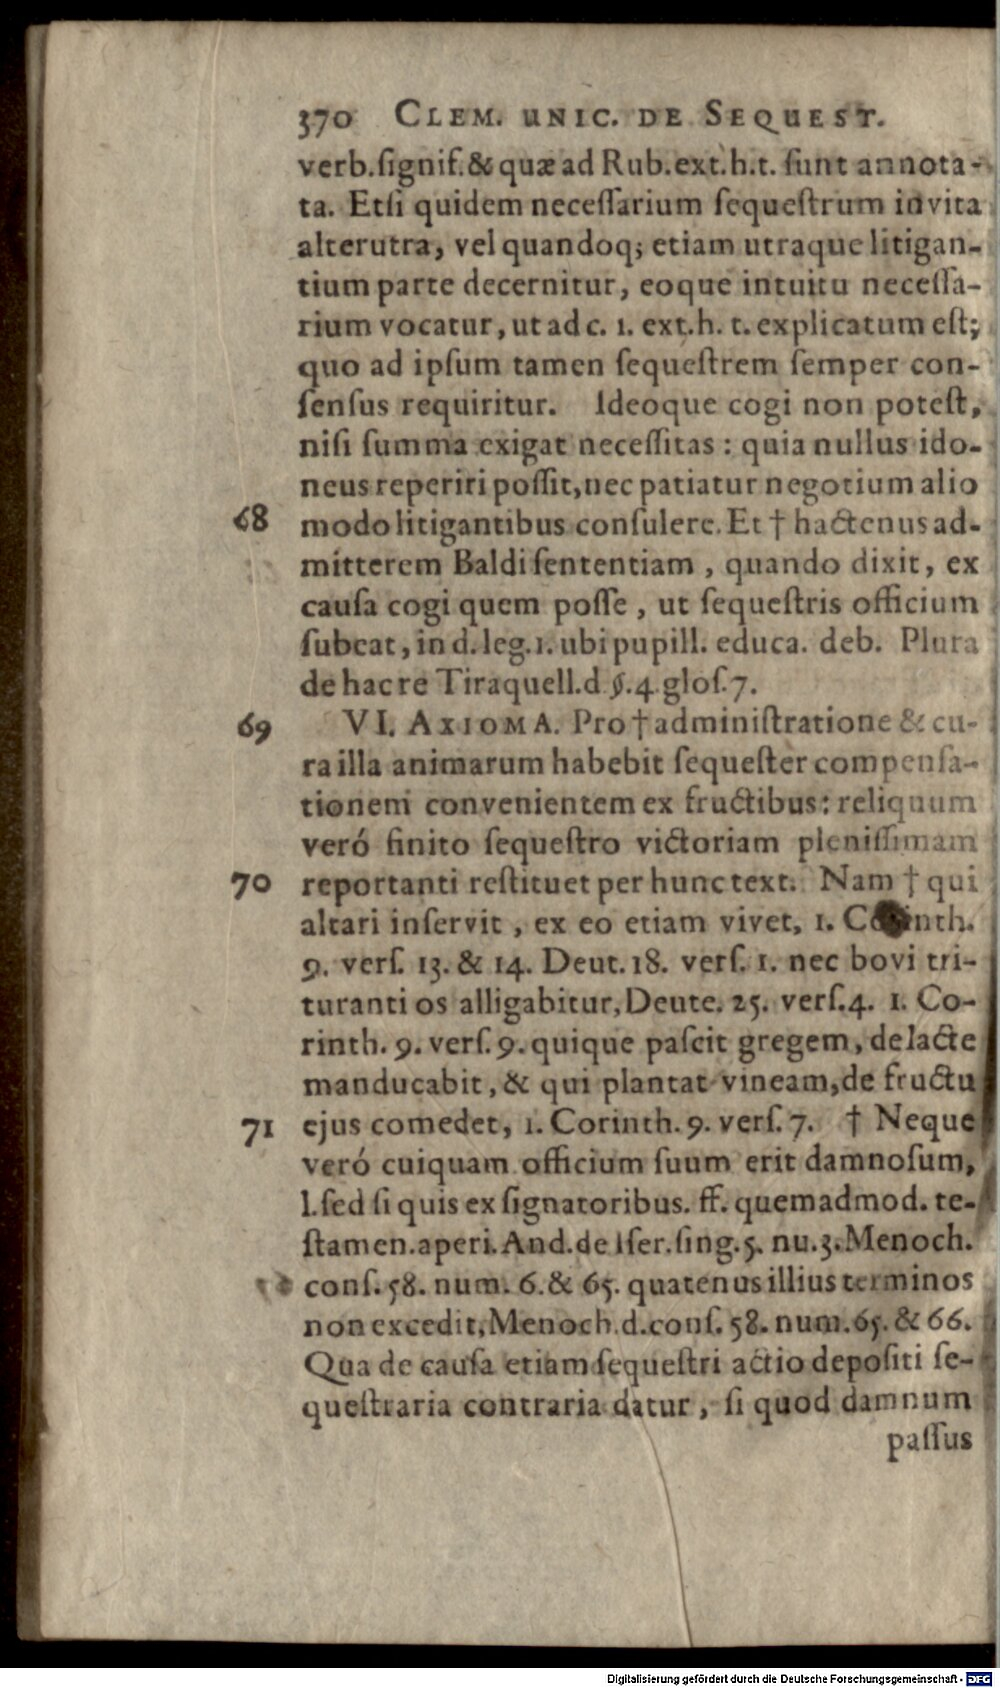 370 CLEM. UNIC. DE SEQUEST.
verb.ſignif.& quæ ad Rub.ext.h.t. ſunt annota-
ta. Etſi quidem neceſſarium ſequeſtrum invita
alterutra, vel quandoq; etiam utraque litigan-
tium parte decernitur, eoque intuitu neceſſa-
rium vocatur, ut ad c. 1. ext.h. t. explicatum eſt;
quo ad ipſum tamen ſequeſtrem ſemper con-
ſenſus requiritur. Ideoque cogi non poteſt,
niſi ſumma exigat neceſſitas : quia nullus ido-
neus reperiri poſſit, nec patiatur negotium alio
68 modo litigantibus conſulere. Et † hactenus ad-
mitterem Baldi ſententiam , quando dixit, ex
cauſa cogi quem poſſe , ut ſequeſtris officium
ſubeat, in d. leg. 1. ubi pupill. educa. deb. Plura
de hac re Tiraquell.d §.4.gloſ.7.
69 VI. AXIOMA. Pro † adminiſtratione & cu-
ra illa animarum habebit ſequeſter compenſa-
tionem convenientem ex fructibus: reliquum
veró finito ſequeſtro victoriam pleniſſimam
70 reportanti reſtituet per hunc text. Nam † qui
altari inſervit , ex eo etiam vivet, 1. Corinth.
9. verſ. 13. & 14. Deut. 18. verſ. 1. nec bovi tri-
turanti os alligabitur, Deute. 25. verſ.4. 1. Co-
rinth. 9. verſ. 9. quique paſcit gregem, de lacte
manducabit, & qui plantat vineam, de fructu
71 ejus comedet, 1. Corinth. 9. verſ. 7. † Neque
veró cuiquam officium ſuum erit damnoſum,
l.ſed ſi quis ex ſignatoribus. ff. quemadmod. te-
ſtamen.aperi. And. de Iſer. ſing. 5. nu. 3. Menoch.
conſ. 58. num. 6. & 65. quatenus illius terminos
non excedit, Menoch.d.conſ. 58. num. 65. & 66.
Qua de cauſa etiam ſequeſtri actio depoſiti ſe-
queſtraria contraria datur , ſi quod damnum
paſſus
Digitalisierung gefördert durch die Deutsche Forschungsgemeinschaft - DFG